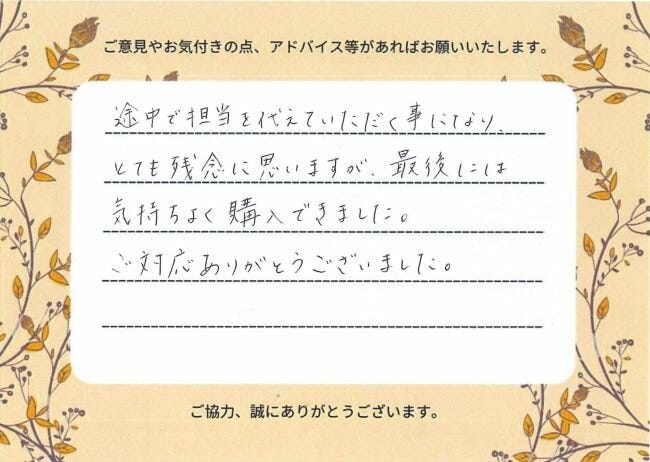 ご意見やお気付きの点、アドバイス等があればお願いいたします。
途中で担当を代えていただく事になり、
とても残念に思いますが、最後には
気持ちよく購入できました。
ご対応ありがとうございました。
ご協力、誠にありがとうございます。